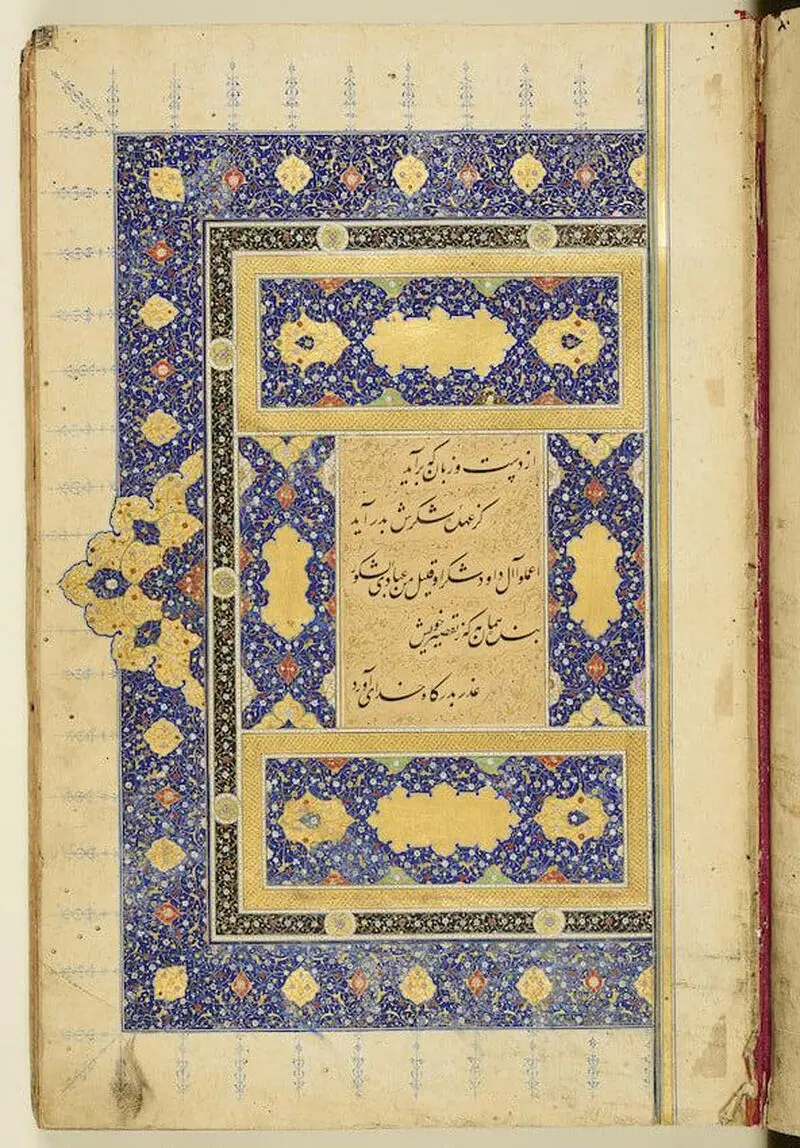 از دست و زبان که برآید
کز عهده شکرش بدر آید
اعملوا آل داود شکرا و قلیل من عبادی الشکور
بنده همان به که ز تقصیر خویش
عذر بدرگاه خدای آورد